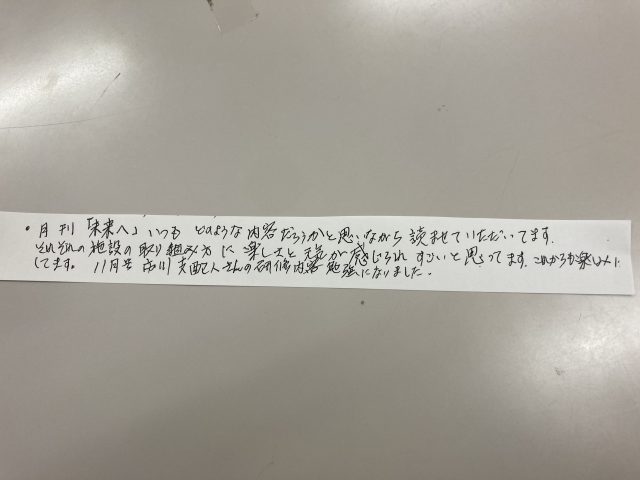 ・月刊「未来へ」いつも どのような内容だろうかと思いながら読ませていただいてます。
それぞれの施設の取り組み方に楽しさと元気が感じられ すごいと思ってます。これからも楽しみに
してます。11月号 市川支配人さんの研修内容勉強になりました。